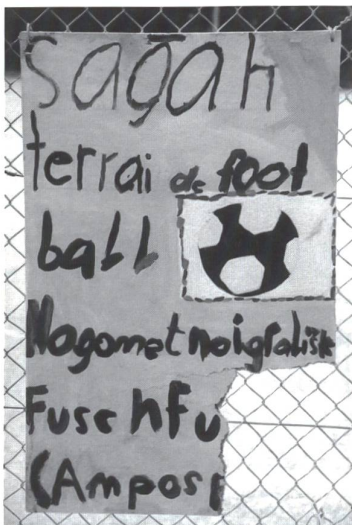 sağah
terrai de foot
ball
Nogometnoigralisk
Fuschfu
CAmpos